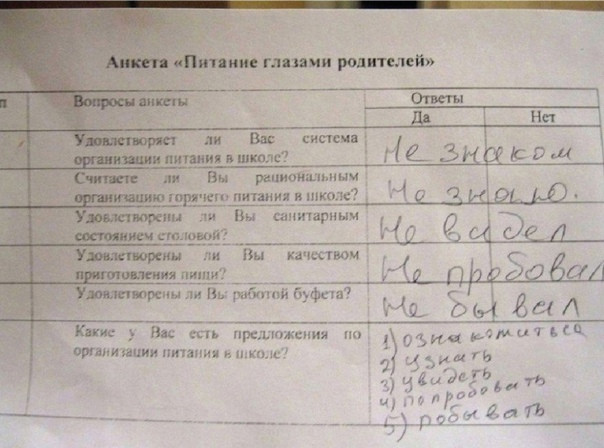 Анкета «Питание глазами родителей»
п
Вопросы анкеты
Ответы
Да
Нет
Удовлетворяет ли Вас система
организации питания в школе?
Не знаком
Считаете ли Вы рациональным
организацию горячего питания в школе?
Не знаю.
Удовлетворены ли Вы санитарным
состоянием столовой?
Не видел
Удовлетворены ли Вы качеством
приготовления пищи?
Не пробовал
Удовлетворены ли Вы работой буфета?
Не бывал
Какие у Вас есть предложения по
организации питания в школе?
1) ознакомиться
2) узнать
3) увидеть
4) попробовать
5) побывать